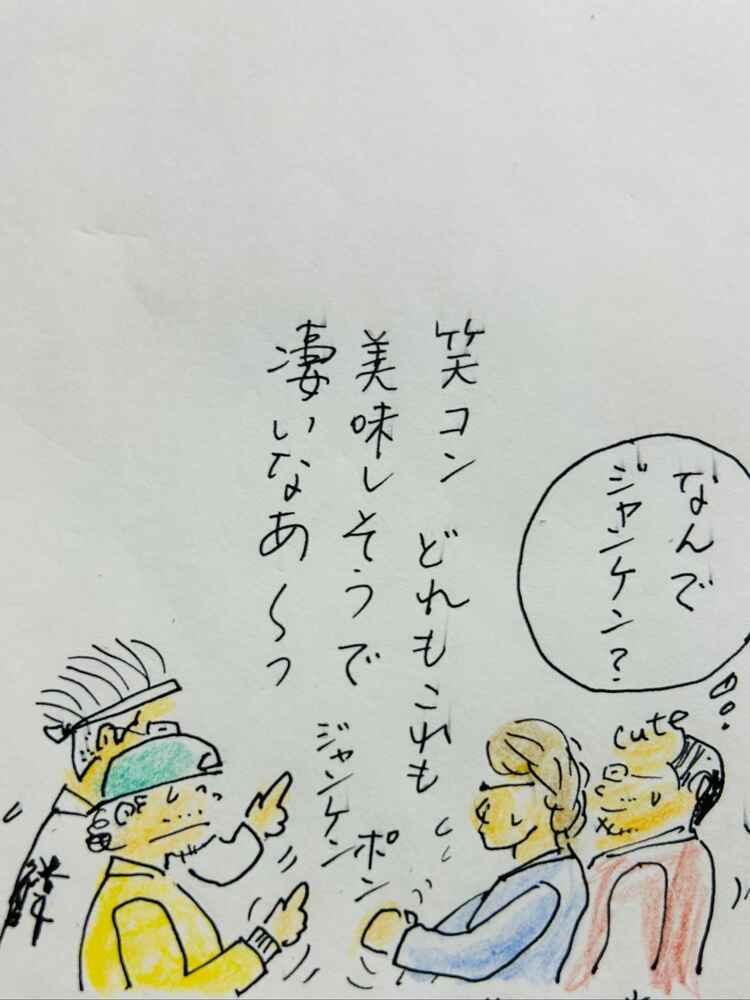 なんで
ジャンケン?
笑コン どれもこれも
美味しそうで
凄いなあ〜っ
ジャンケン
ポン
cute